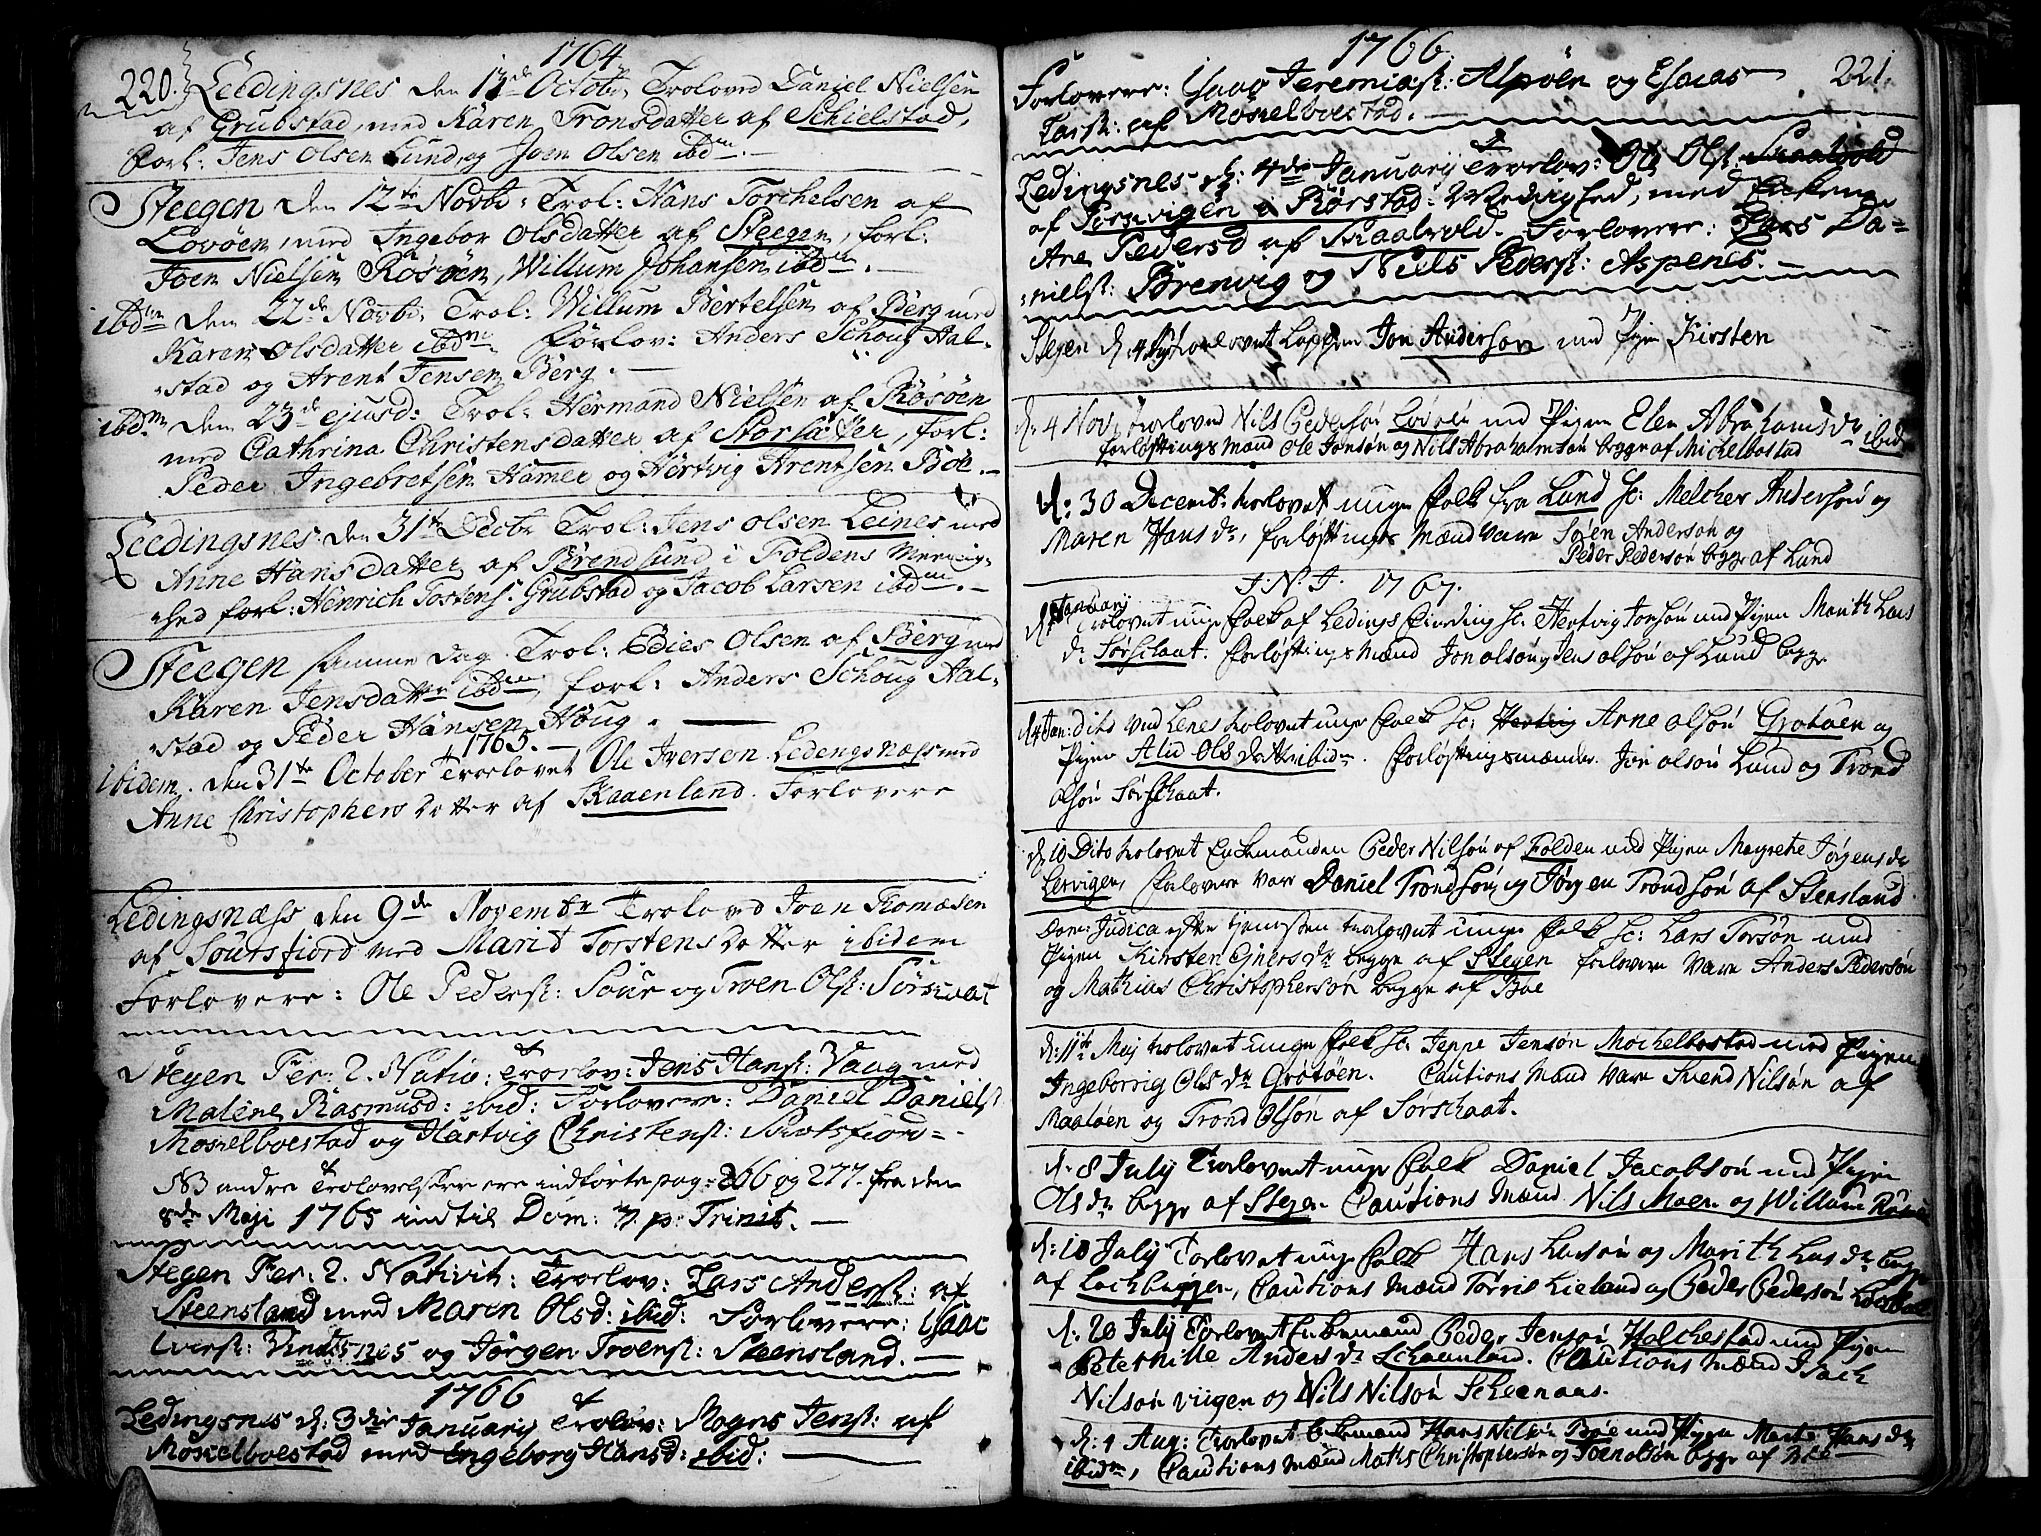 220.
1764.
Leedingsnes den 17de Octobr Trolovd Daniel Nielsen
af Grubstad, med Karen Tronsdatter af Schielstad,
Forl: Jens Olsen Lund, og Joen Olsen ibdm. —
Steegen den 12te Novbr: Trol: Hans Torchelsen af
Lovöen, med Ingebor Olsdatter af Steegen, forl:
Joen Nielsen Rösöen, Willum Johansen ibdm. —
ibdm den 22de Novbr, Trol: Willum Bertelsen af Berg med
Karen Olsdatter ibdm. Forlov: Anders Schoug Aal-
stad og Arent Jensen Berg. —
ibdm den 23de ejusd: Trol: Hermand Nielsen af Rösöen
med Cathrina Christensdatter af Storsæter, forl:
Peder Ingebretsen Hamer og Hertvig Arentsen Böe. —
Leedingsnes den 31te Decbr Trol: Jens Olsen Leines med
Anne Hansdatter af Brendsund i Foldens Menig-
hed forl: Henrich Tostens: Grubstad og Jacob Larsen ibdm. —
Steegen samme Dag Trol: Edies Olsen af Berg med
Karen Jensdatter ibdm, forl: Anders Schoug Aal-
stad og Peder Hansen Houg. —
1765. —
Ibidem. den 31te October Trorlovet Ole Iversen Ledengsnæss med
Anne Christophers Dotter af Skaaenland. Forlovere
Ledingsnæss den 9de Novembr Trolovd Joen Thomæsen
af Soursfiord med Marit Torstens Dotter ibidem
Forlovere: Ole Peders: Sour og Troen Ols: Sörskaat
Stegen Fer: 2. Nativ: Trorlov: Jens Hans: Vaag med
Malene Rasmusd: ibid: Forlovere: Daniel Daniels
Moskelboestad og Hartvig Christens:
NB andre Trolovelser ere indförte pag: 266 og 277. fra den
8de Maji 1765 indtil Dom: 7. p: Trinit. —
Stegen Fer: 2. Nativit: Trorlov: Lars Anders: af
Steensland med Maren Olsd: ibid: Forlovere: Isaac
Ivers: og Jörgen Troens: Steensland. —
1766
Ledingsnes d: 3die Januarij Trolov: Mogns Jens: af
Moskelboestad med Engeborg Hansd: ibid: —
1766.
221.
Forlovere: Isaac Jeremias: Alpöen og Esaias
Lars: af Moskelboestad. —
Ledingsnes d: 4de January Trorlov: Ole Ols: Skaalvold
af Tornvigen i Rörstad: Medighed, med Enken
Ane Pedersd af Skaalvold. Forlovere: Lars Da-
niels: Brenvig og Niels Peders: Aspenes. —
Stegen d: Lappen Jon Anderson med Pigen Kirsten
d: 4 Nov: trolovet Nils Pedersön Lövöen med Pigen Elen Abrahams dr ibid
forlöftnings mænd Ole Jonsön og Nils Abrahamsön begge af Michelbostad
d: 30 Decemb: trolovet unge Folk fra Lund sc: Melcher Andersön og
Maren Hans dr, forlöftnings Mænd vare Sören Anderson og
Peder Pederson begge af Lund
J. N. J. 1767.
January
Trolovet unge Folk af Ledings Finding sc: Hertvig Jonsön med Pigen Marith Lars
dr Sörschaat. Forlöftnings mænd Jon olsön og Jens olsön af Lund begge
d: 4 Jan: Dito ved Lenes trolovet unge Folk sc: Hertvig Arne olsön Grotöen og
Pigen Alid Ols dotter ibidm. Forlöftningsmænder Jon olsön Lund og Trond
olsön Sörschaat.
d: 10 Dito trolovet Enkemanden Peder Nilsön af Folden med Pigen Magrethe Jörgens dr
Lervigen, Forlovere vare Daniel Trondsön og Jörgen Trondsön af Stensland
Dom: Judica efter tjenesten trolovet unge Folk sc: Lars Torsön med
Pigen Kirsten Ejners dr begge af Stegen forlovere vare Anders Pedersön
og Mathias Christophersön begge af Boe
d: 11te Maj trolovet unge Folk sc: Jenne Jensön Mochelbostad med Pigen
Ingeborrig Ols dr Grotöen. Cautions Mænd vare Svend Nilsön af
Maalöen og Trond Olsön af Sörschaat.
d: 8 July Trorlovet unge Folk Daniel Jacobsön med Pigen
Ols dr begge af Stegen Cautions Mænd Nils Moen og Willum
d: 10 July Torlovet unge Folk Hans Larsön og Marith Lars dr begge
af Lochbyggen, Cautions Mænd Törris Lieland og Peder Pedersön
d: 20 July Torlovet Enkemand Peder Jensön Holchestad med Pigen
Peternille Anders dr Schaanland. Cautions Mænd Isach
Nilsön Viigen og Nils Nilsön Scheenaas.
d: 4 Aug: Trorlovet Enkemand Hans Nilsön Böe med Pigen Marte Hans dr
ibidm, Cautions mænd Maths Christophersön og Joen olsön begge af Böe